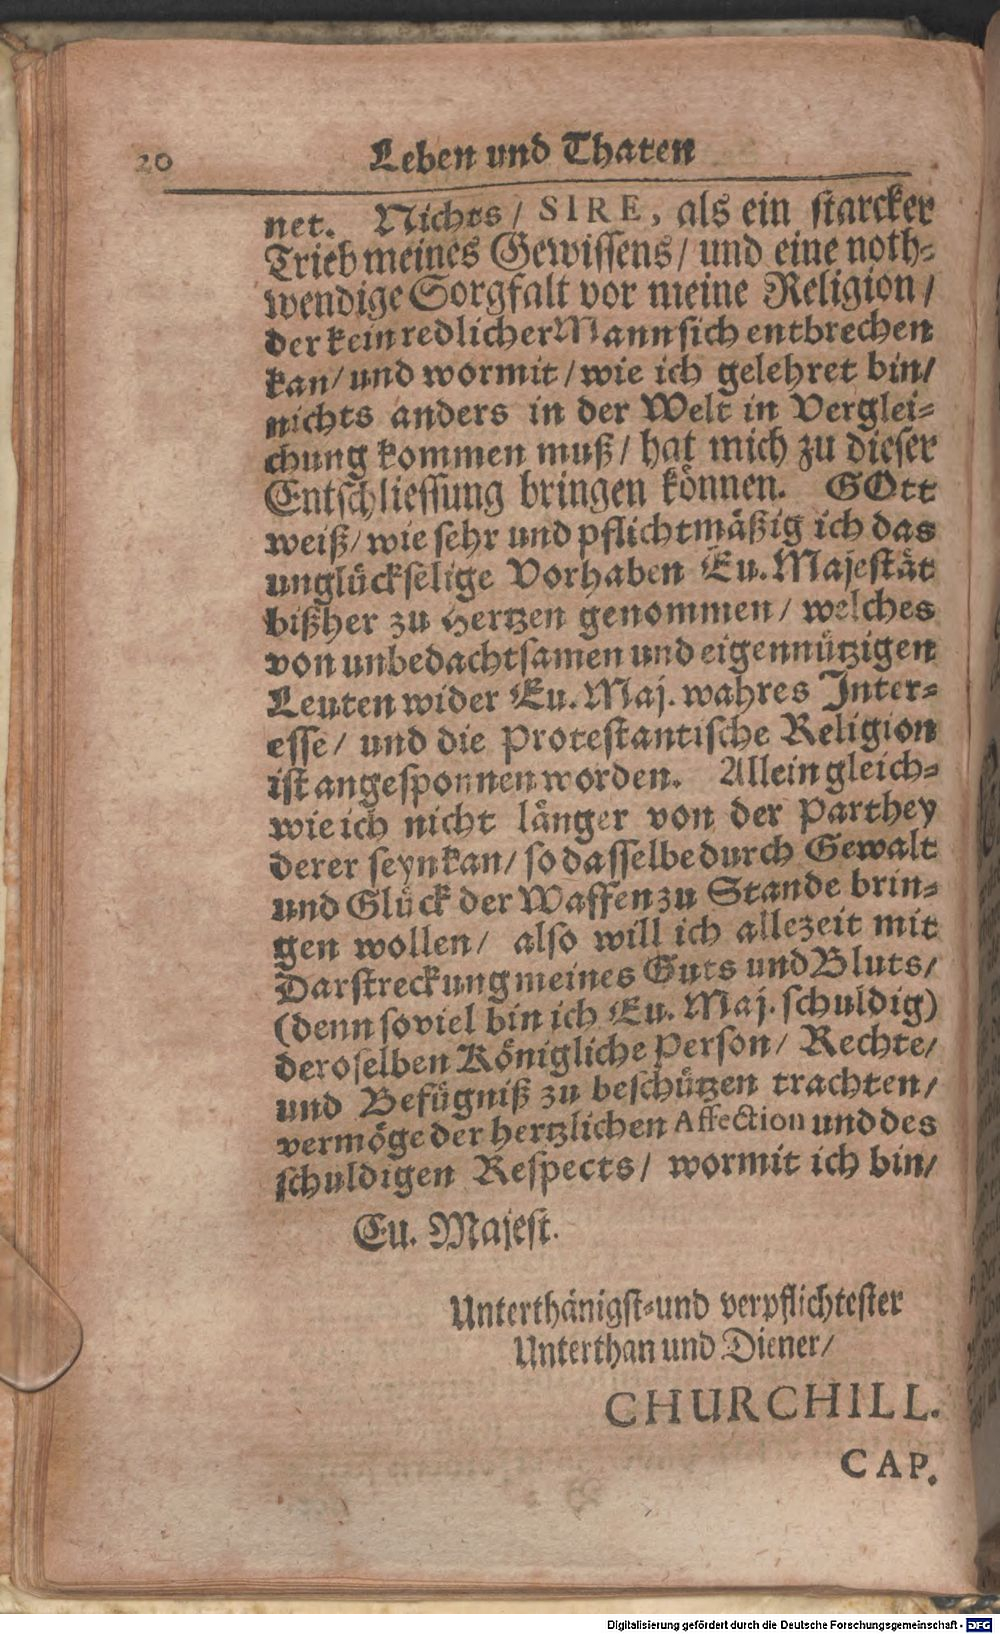 20 Leben und Thaten
net. Nichts / SIRE, als ein starcker
Trieb meines Gewissens / und eine noth-
wendige Sorgfalt vor meine Religion /
der kein redlicher Mann sich entbrechen
kan / und wormit / wie ich gelehret bin /
nichts anders in der Welt in Verglei-
chung kommen muß / hat mich zu dieser
Entschliessung bringen können. GOtt
weiß / wie sehr und pflichtmäßig ich das
unglückselige Vorhaben Eu. Majestät
bißher zu Hertzen genommen / welches
von unbedachtsamen und eigennützigen
Leuten wider Eu. Maj. wahres Inter-
esse / und die Protestantische Religion
ist angesponnen worden. Allein gleich-
wie ich nicht länger von der Parthey
derer seyn kan / so dasselbe durch Gewalt
und Glück der Waffen zu Stande brin-
gen wollen / also will ich allezeit mit
Darstreckung meines Guts und Bluts /
(denn soviel bin ich Eu. Maj. schuldig)
deroselben Königliche Person / Rechte /
und Befügniß zu beschützen trachten /
vermöge der hertzlichen Affection und des
schuldigen Respects / wormit ich bin /
Eu. Majest.
Unterthänigst-und verpflichtester
Unterthan und Diener /
CHURCHILL.
CAP.
Digitalisierung gefördert durch die Deutsche Forschungsgemeinschaft - DFG